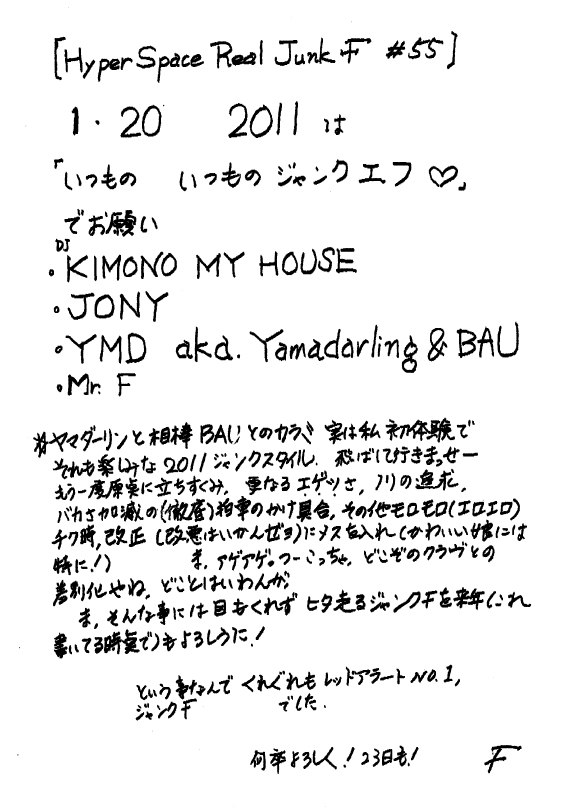 [Hyper Space Real Junk F #55]
1・20 2011 は
「いつもの いつもの ジャンクエフ♡」
でお願い
DJ
・KIMONO MY HOUSE
・JONY
・YMD aka. Yamadarling & BAU
・Mr. F
ヤマダーリンと相棒BAUとのカラミ 実は私初体験で
それも楽しみな2011ジャンクスタイル. 飛ばして行きまっせー
もう一度原点に立ちすくみ, 更なるエゲツさ, ノリの追求,
バカさ加減の(徹底)拍車のかけ具合, その他モロモロ(エロエロ)
チク時, 改正 (改悪はいかんぜヨ)にメスを入れ(かわいい娘には
特に!) ま, アゲアゲ。つーこっちゃ, どこぞのクラヴとの
差別化やね, どことはいわんが,
ま, そんな事には目もくれず ヒタ走るジャンクFを来年(これ
書いてる時点で)もよろしうに!
という事なんで くれぐれも レッドアラート NO.1,
ジャンクF でした.
何卒よろしく! 23日も! F